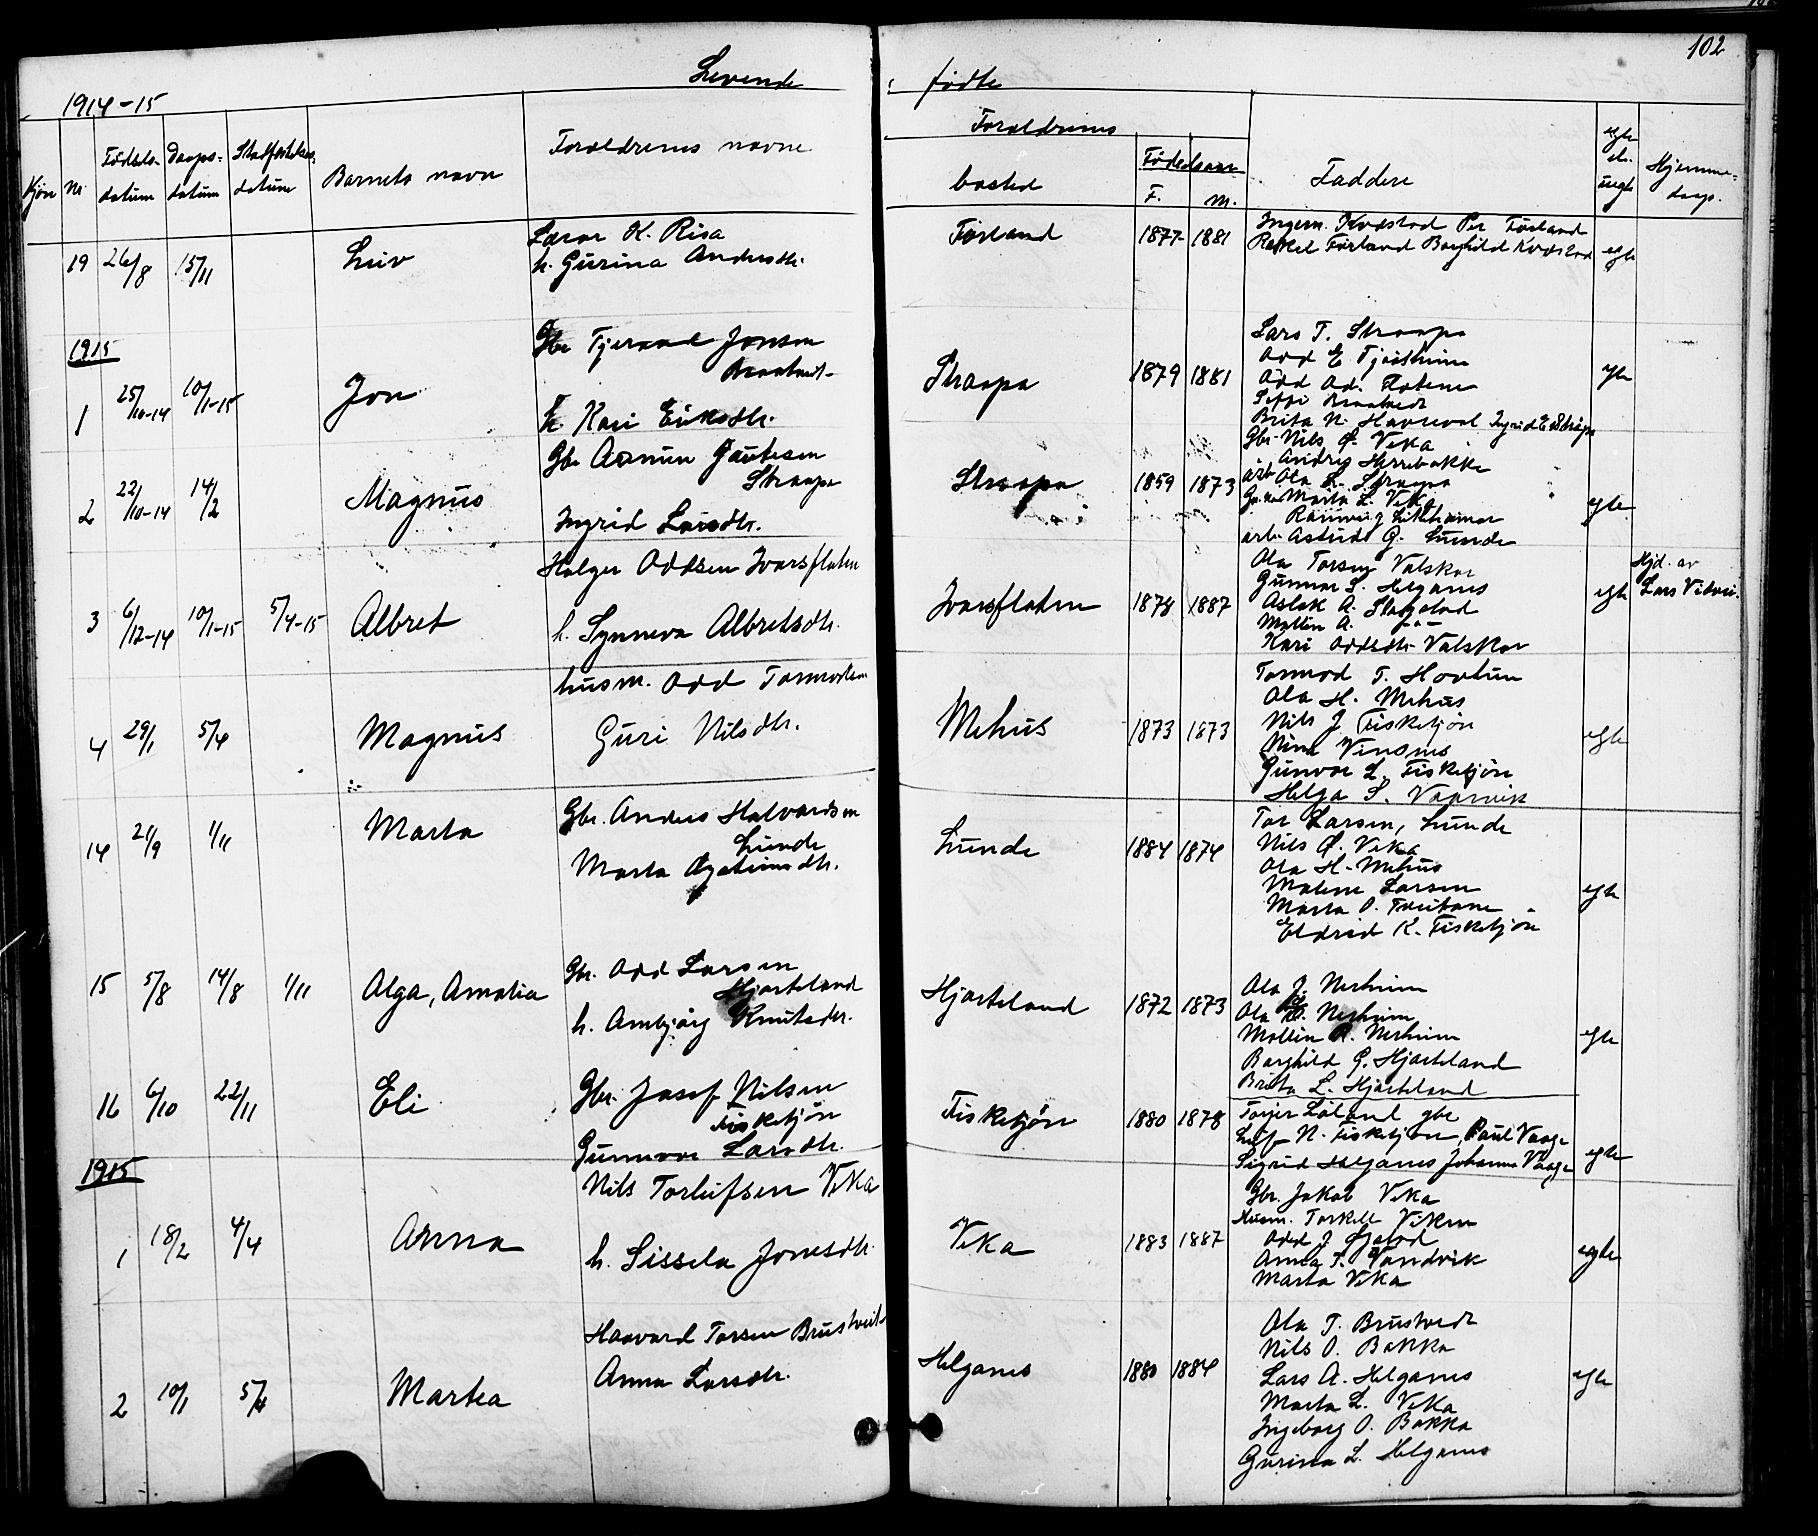 102
1914-15 Levende fødte
Kjøn Nr. Fødsels-datum Daaps-datum Stadfestelses-datum Barnets navn Foreldrenes navne Foreldrenes bosted Fødselsaar F. M. Faddere egte el. uegte Hjemme-daap.
19 26/8 15/11 Liv
Lærer K. Risa
h. Gurina Andersdtr.
Førland 1877 1881
Ingem. Kvæstad Per Førland
Rakel Førland Borghild Kvæstad
egte
1915
1 25/10-14 10/1-15 Jon
Gbr Tjerand Jonsen
Braatveit
h. Kari Eriksdtr.
Straapa 1879 1881
Lars T. Straapa
Odd E Tjeltheim
Odd Od. Floten
Braatvedt
Brita N. Havrevol Ingrid E Straapa
egte
2 22/10-14 14/2 Magnus
Gbr Aamun Gautesen
Straapa
Ingrid Larsdtr.
Straapa 1859 1873
Gbr. Nils O. Vika
Andreas Herrebakke
arb Ola L. Straapa
Marta L. Vika
Rannveig Litlehamar
arb. Astrid G. Lunde
egte
3 6/12-14 10/1-15 5/4-15 Albret
Holger Oddsen Ivarsflaten
h. Synneva Albretsdtr.
Ivarsflaten 1878 1887
Ola Torsen Valskar
Gunnar S. Helganes
Aslak A. Skogstad
Mallin A. - " -
Kari Oddsdtr Valskar
egte
Hjd. av
Lars Vidvei.
4 29/1 5/4 Magnus
husm. Odd Tormodsen
Guri Nilsdtr.
Mehus 1873 1873
Tormod T. Hovtun
Ola H. Mehus
Nils J Fisketjøn
Nina Vinsnes
Gunvor L. Fisketjøn
Helga S. Vaarvik
egte
14 21/9 1/11 Marta
Gbr. Anders Halvardsen
Lunde
Marta Aystumsdtr.
Lunde 1884 1874
Tor Larsen, Lunde
Nils O. Vika
Ola H. Mehus
Malene Larsen
Marta O. Treitane
Eldrid K. Fisketjøn
egte
15 5/8 14/8 1/11 Alga, Amalia
Gbr. Odd Larsen
Hjorteland
h. Ambjørg Knutsdtr.
Hjorteland 1872 1873
Ola J. Nerheim
Ola O. Nerheim
Mallin O. Nerheim
Borghild G. Hjorteland
Brita L. Hjorteland
egte
16 6/10 22/11 Eli
Gbr. Josef Nilsen
Fisketjøn
Gunnvor Larsdtr.
Fisketjøn 1880 1878
Torjer Løland gbr
Leif N. Fisketjøn, Paul Vaage
Sigrid Helganes Johanne Vaage
egte
1915
1 18/2 4/4 Anna
Nils Torleifsen Vika
h. Sissela Jonesdtr.
Vika 1883 1887
Gbr. Jakob Vika
Husm. Torkell Viken
Odd J Sjøbod
Anna T. Vandvik
Marta Vika
egte
2 10/1 5/4 Martea
Haavard Torsen Brustveit
Anna Larsdtr.
Helganes 1880 1884
Ola T. Brustvedt
Nils O. Bakka
Lars A. Helganes
Marta L. Vika
Ingeborg O. Bakka
Gurina L. Helganes
egte